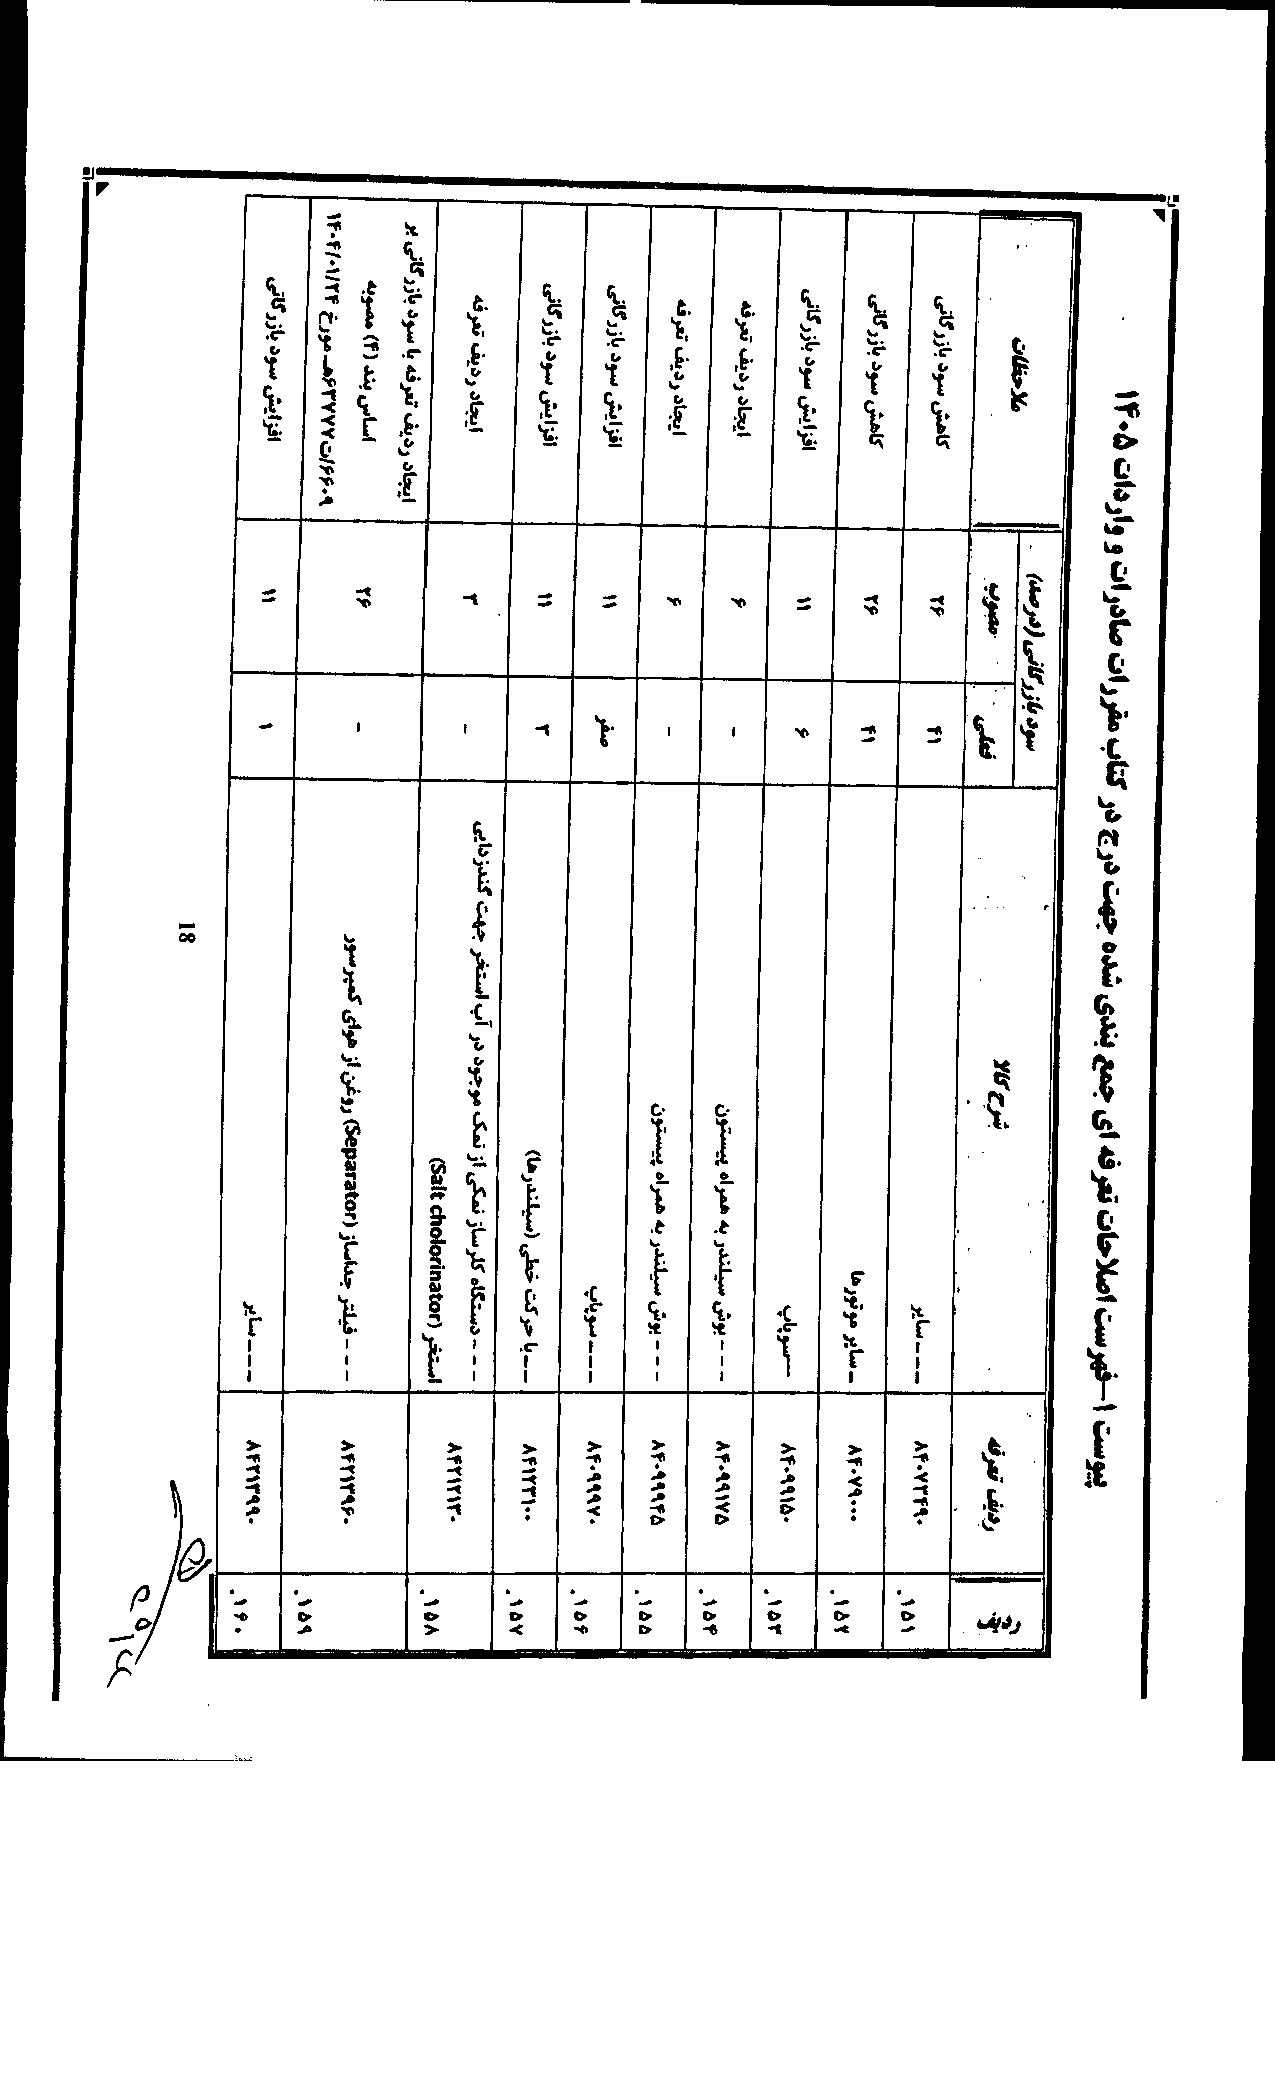 پیوست ۱-فهرست اصلاحات تعرفه ای جمع بندی شده جهت درج در کتاب مقررات صادرات و واردات ۱۴۰۵
ردیف	ردیف تعرفه	شرح کالا	سود بازرگانی (درصد)	ملاحظات
فعلی	مصوب
.۱۵۱	۸۴۰۷۳۴۹۰	---سایر	۴۱	۲۶	کاهش سود بازرگانی
.۱۵۲	۸۴۰۷۹۰۰۰	-سایر موتورها	۴۱	۲۶	کاهش سود بازرگانی
.۱۵۳	۸۴۰۹۹۱۵۰	---سوپاپ	۶	۱۱	افزایش سود بازرگانی
.۱۵۴	۸۴۰۹۹۱۷۵	---بوش سیلندر به همراه پیستون	-	۶	ایجاد ردیف تعرفه
.۱۵۵	۸۴۰۹۹۹۴۵	---بوش سیلندر به همراه پیستون	-	۶	ایجاد ردیف تعرفه
.۱۵۶	۸۴۰۹۹۹۷۰	---سوپاپ	صفر	۱۱	افزایش سود بازرگانی
.۱۵۷	۸۴۱۲۳۱۰۰	--با حرکت خطی (سیلندرها)	۳	۱۱	افزایش سود بازرگانی
.۱۵۸	۸۴۲۱۲۱۳۰	---دستگاه کلرساز نمکی از نمک موجود در آب استخر جهت گندزدایی
استخر (Salt cholorinator)	-	۳	ایجاد ردیف تعرفه
.۱۵۹	۸۴۲۱۳۹۶۰	---فیلتر جداساز (Separator) روغن از هوای کمپرسور	-	۲۶	ایجاد ردیف تعرفه با سود بازرگانی بر
اساس بند (۴) مصوبه
۶۶۰۹/ت۶۳۷۷۷هـ مورخ ۱۴۰۴/۰۱/۲۴
.۱۶۰	۸۴۲۱۳۹۹۰	---سایر	۱	۱۱	افزایش سود بازرگانی
18